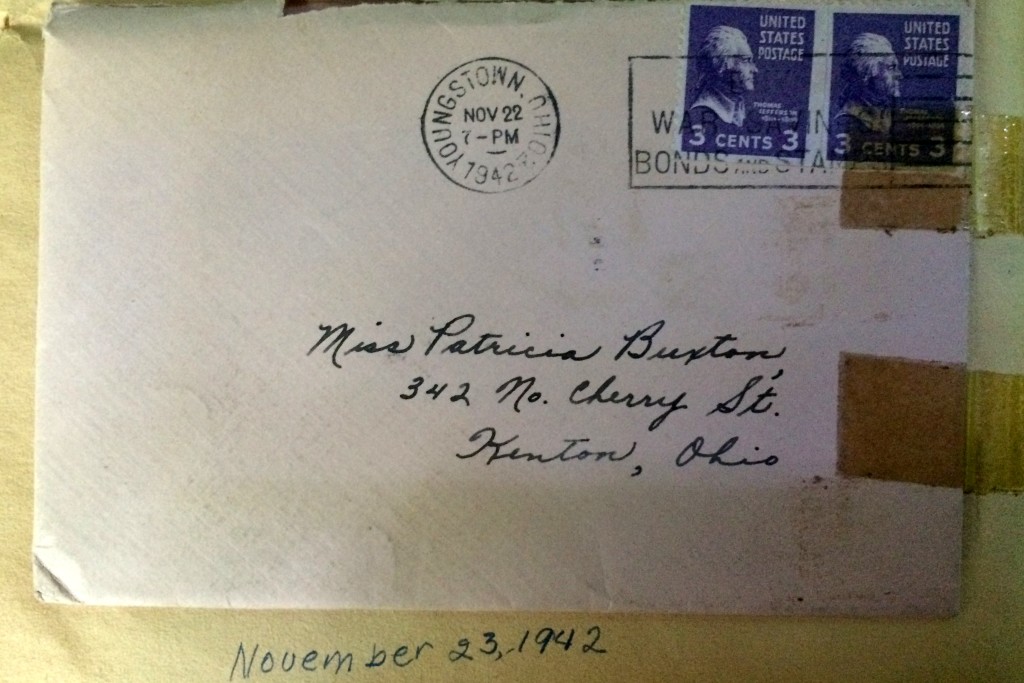 YOUNGSTOWN, OHIO
NOV 22
7-PM
1942
UNITED
STATES
POSTAGE
THOMAS
JEFFERSON
3 CENTS 3
UNITED
STATES
POSTAGE
3 CENTS 3
WAR SAVINGS
BONDS AND STAMPS
Miss Patricia Buxton,
342 No. Cherry St.
Kenton, Ohio
November 23, 1942